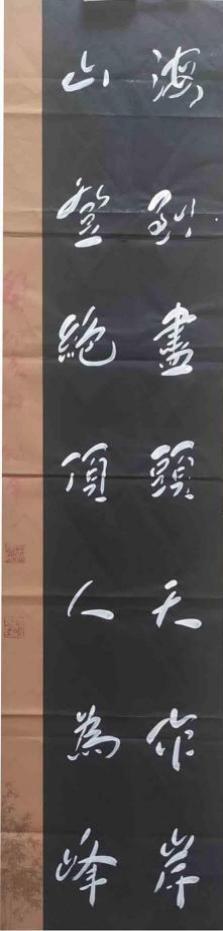 海到盡頭天作岸
山登絶頂人為峰